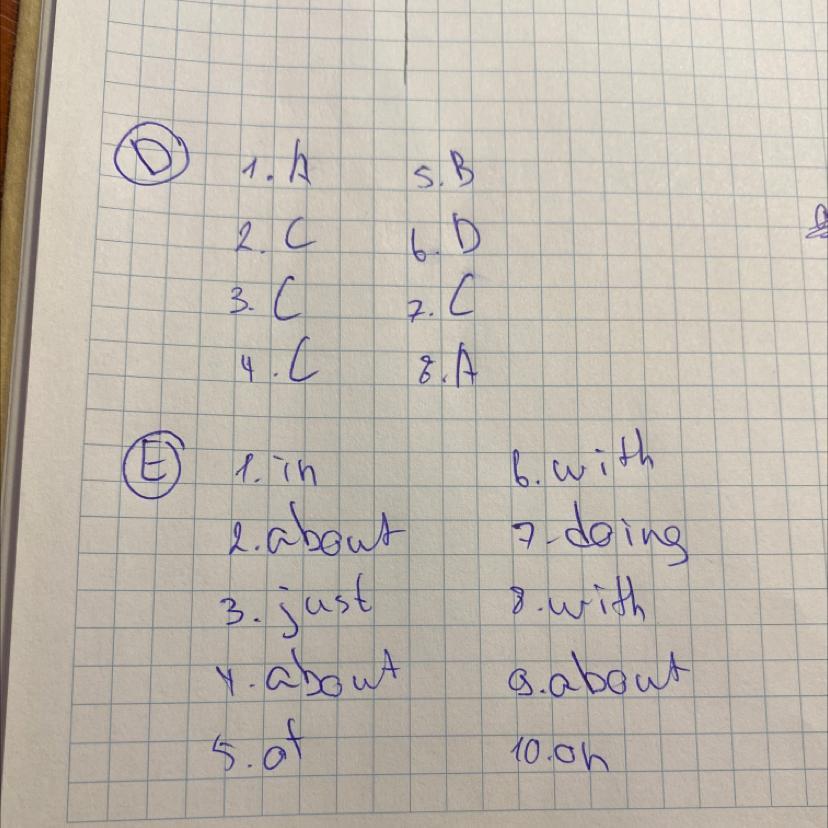 D 1. A 5. B
2. C 6. D
3. C 7. C
4. C 8. A
E 1. in 6. with
2. about 7. doing
3. just 8. with
4. about 9. about
5. of 10. on